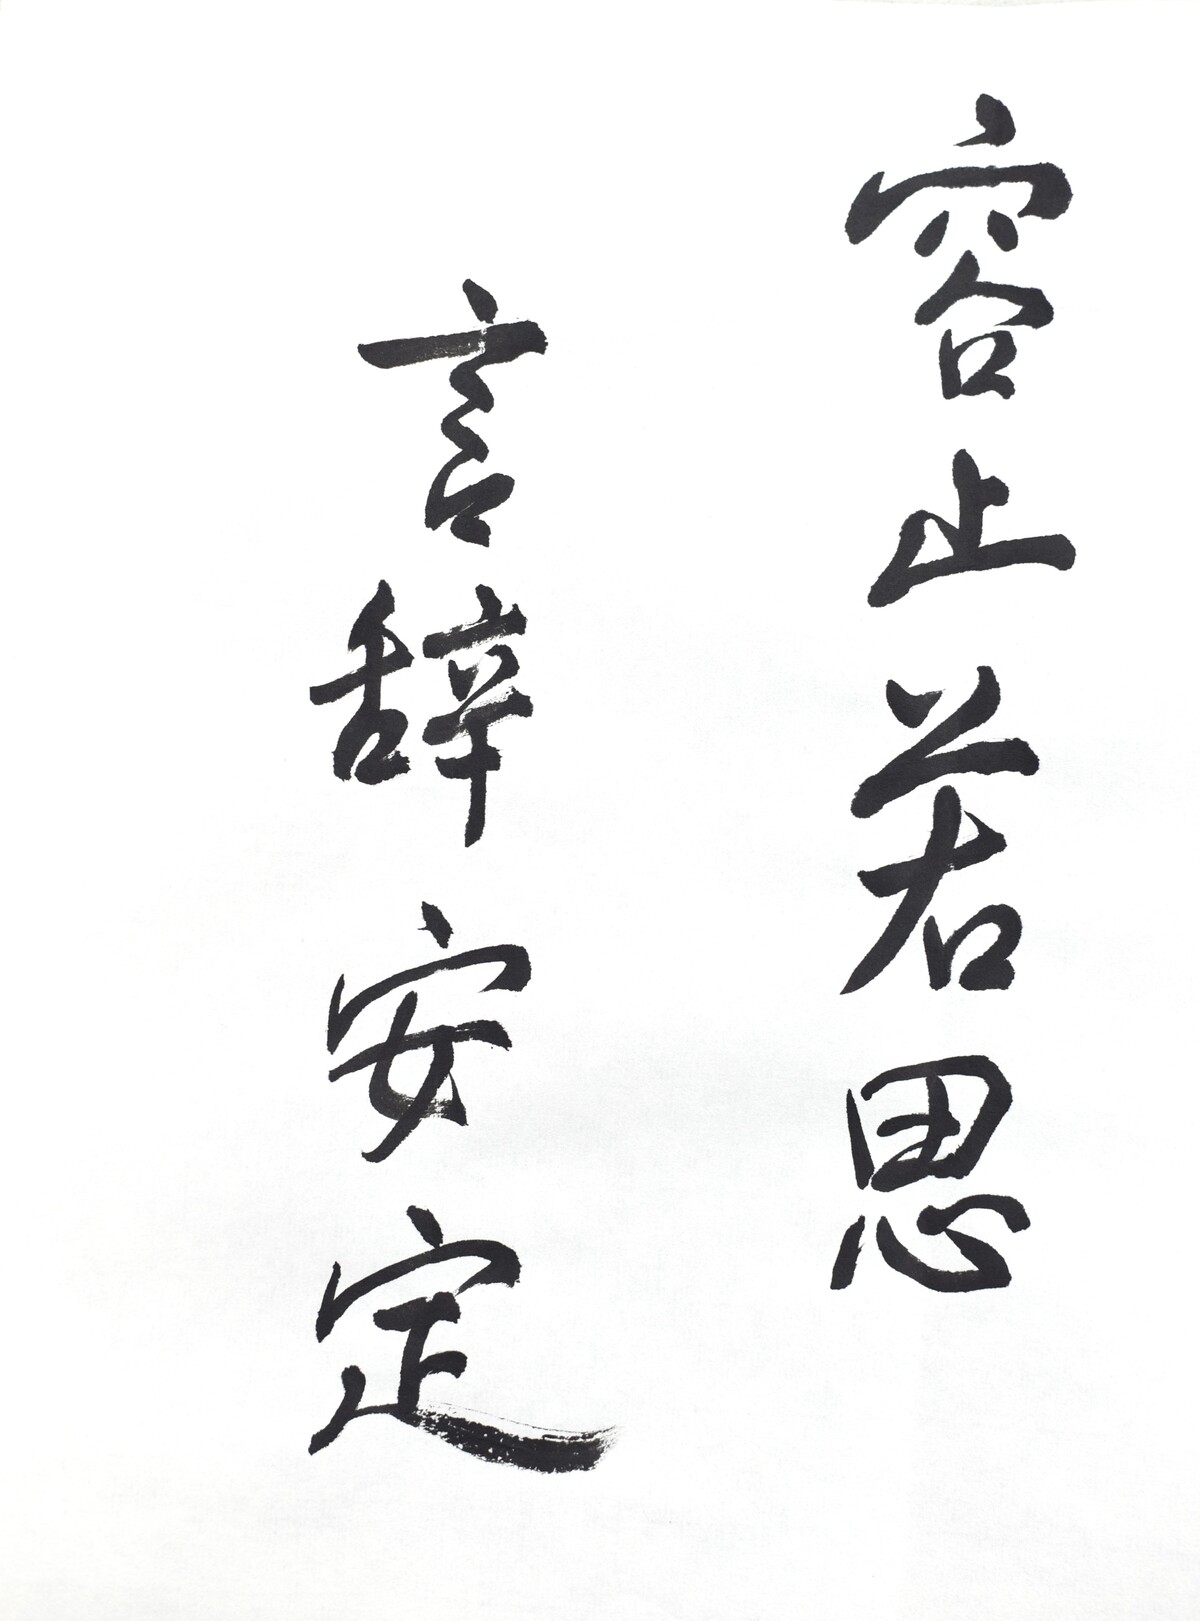 容止若思
言辞安定